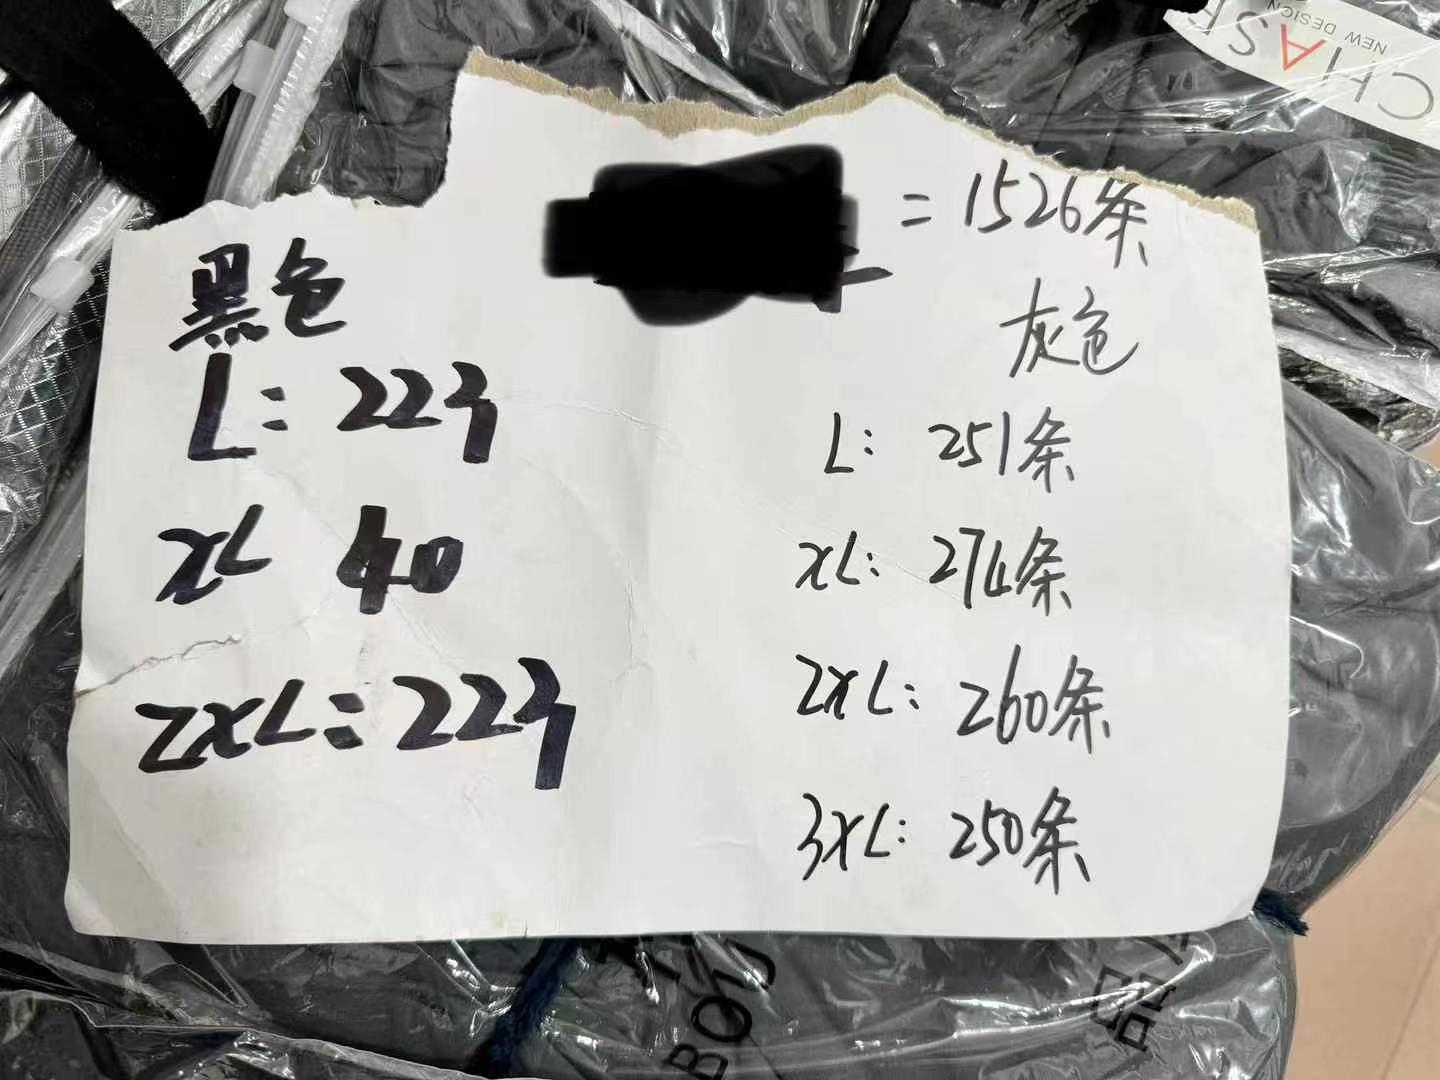 CHASE
NEW DESIGN
= 1526条
黑色
L: 223
XL 40
2XL: 223
灰色
L: 251条
XL: 274条
2XL: 260条
3XL: 250条